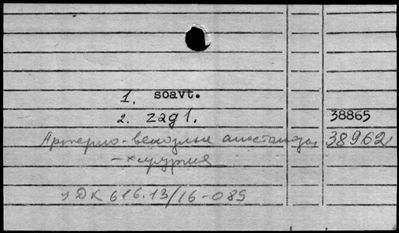 1. soavt.
2. zagl. 38865
Артерио-венозные анастомозы 38962
- хирургия
УДК 616.13/16-089